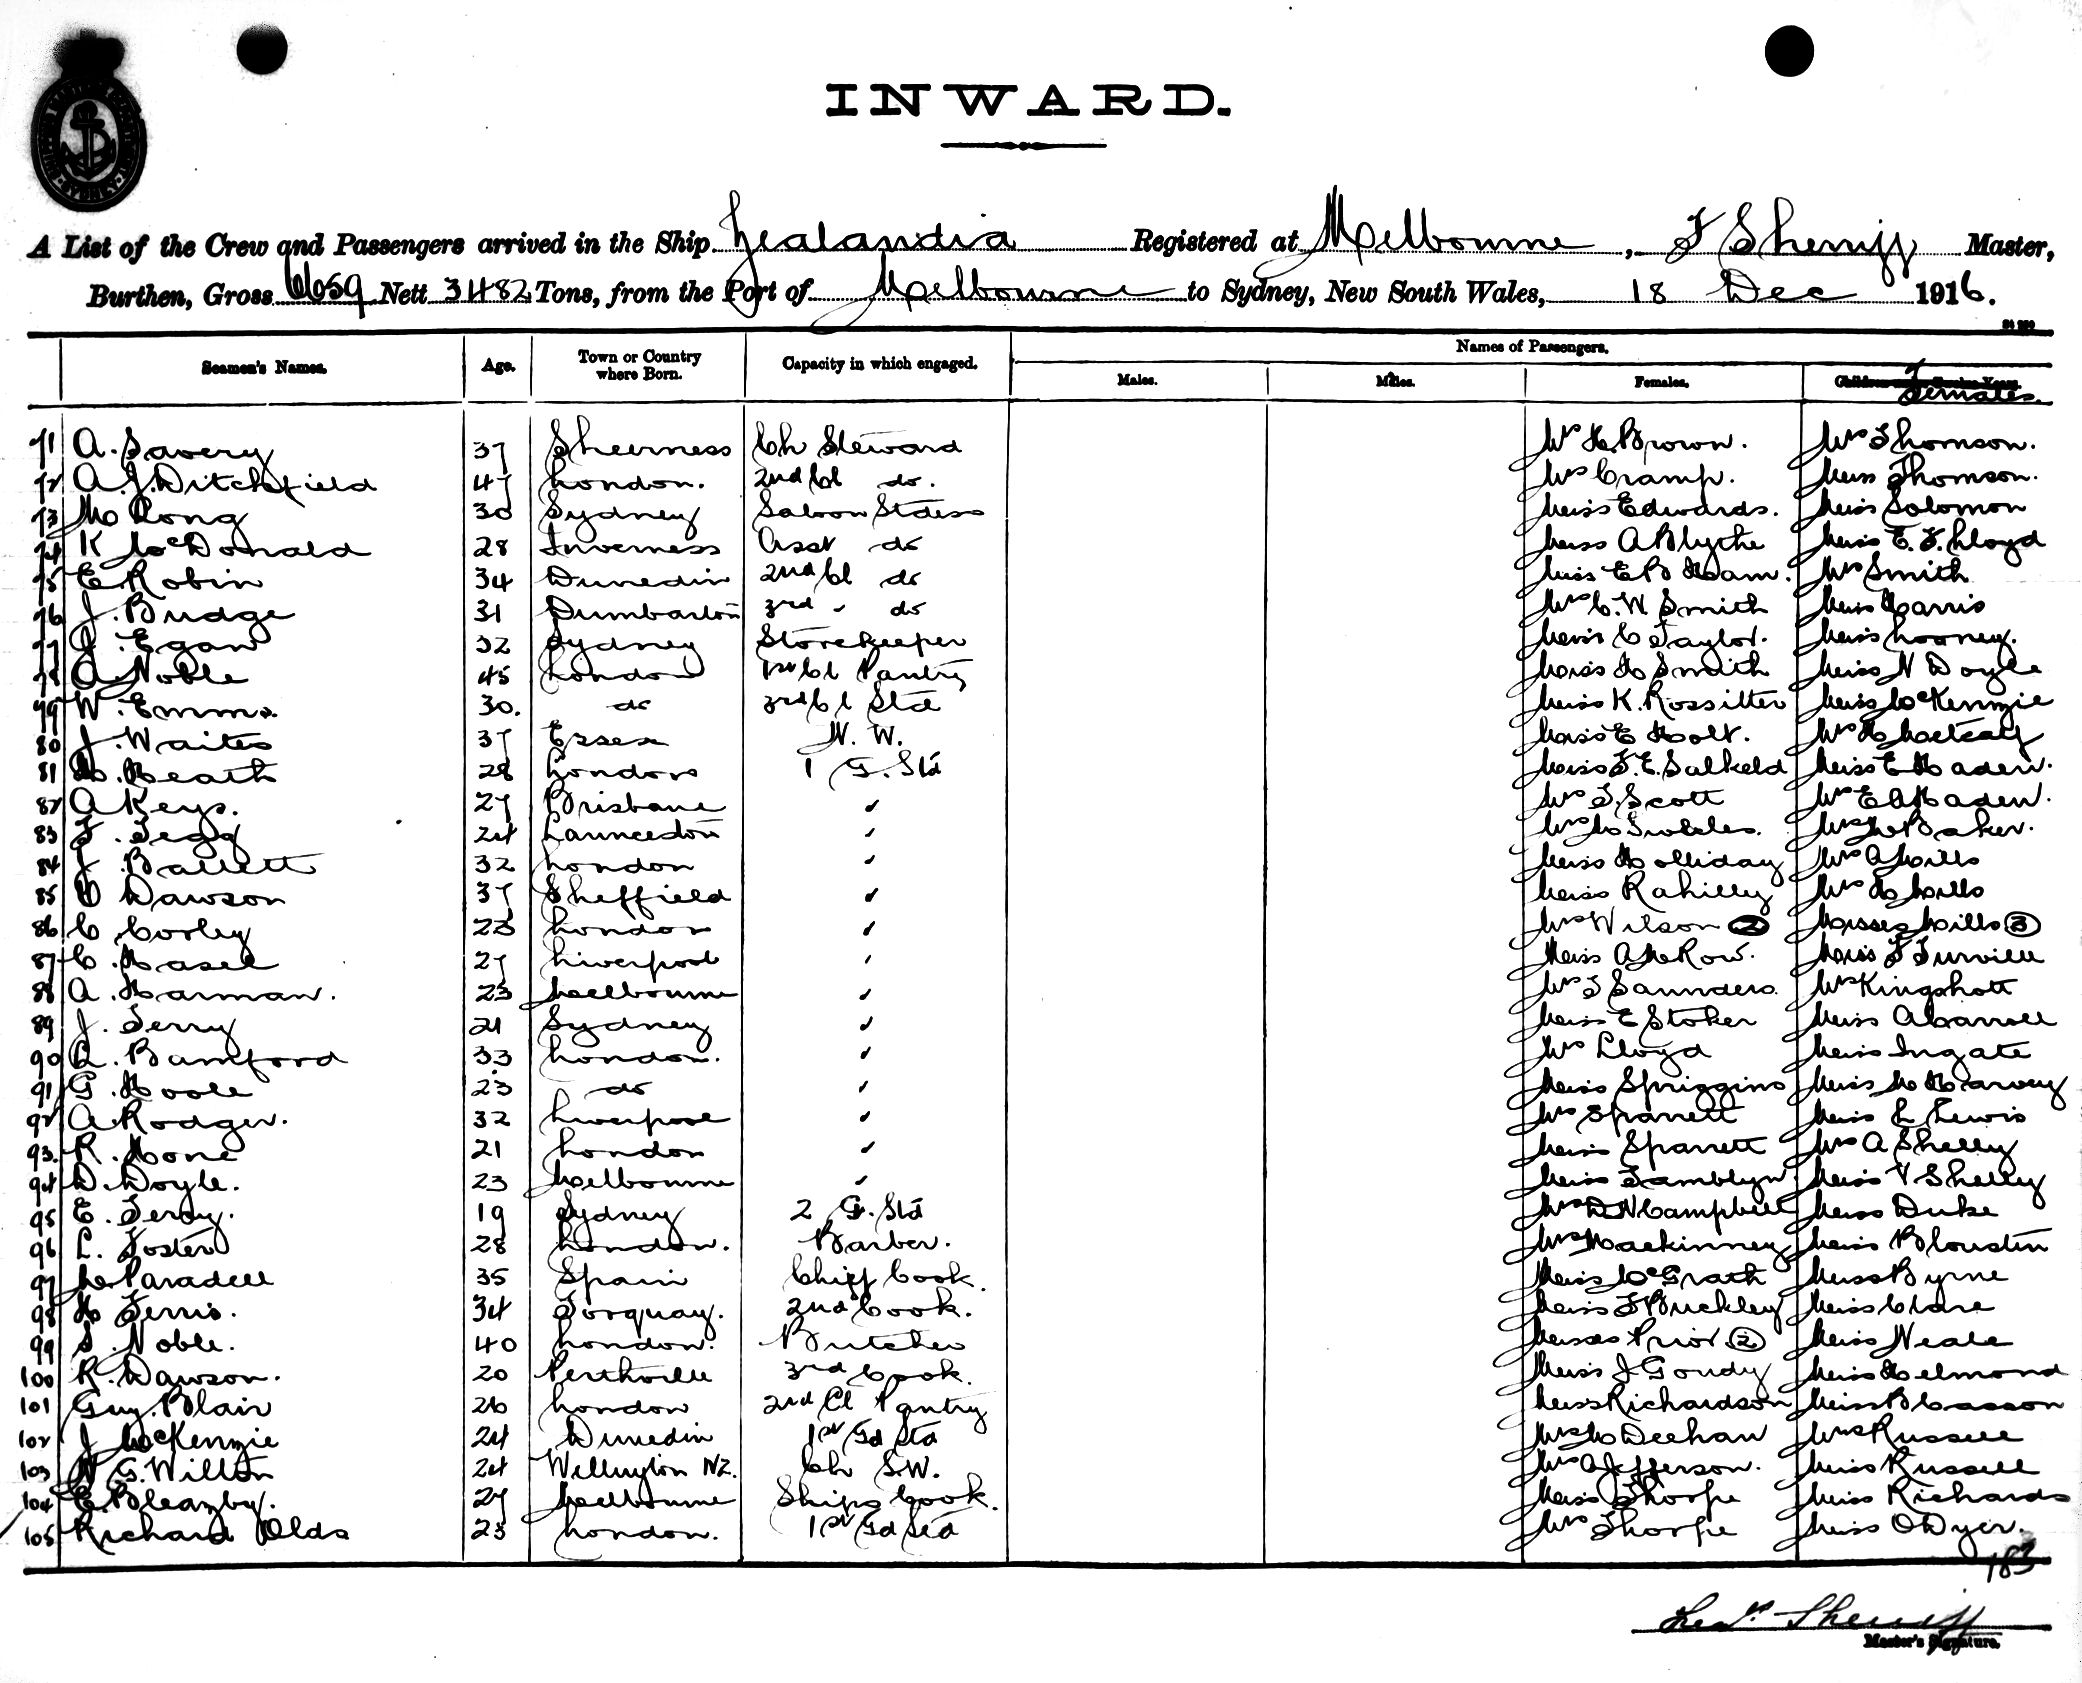 INWARD.
A List of the Crew and Passengers arrived in the Ship Zealandia Registered at Melbourne, F Sherriff Master,
Burthen, Gross 6659 Nett 3482 Tons, from the Port of Melbourne to Sydney, New South Wales, 18 Dec 1916.
Names of Passengers.
Seamen's Names. Age. Town or Country where Born. Capacity in which engaged. Males. Males. Females. Females.
71 A. Savery 37 Sheerness Ch Steward Mrs H. Brown. Mrs Thomson.
72 A. J. Ditchfield 47 London. 2nd Cl do. Mrs Cramp. Miss Thomson.
73 M Long 30 Sydney Saloon Stdess Miss Edwards. Miss Solomon
74 K McDonald 28 Inverness Asst do Miss A Blythe Miss E. F. Lloyd
75 E Robin 34 Dunedin 2nd Cl do Miss E B Ham. Mrs Smith
76 J. Budge 31 Dumbarton 3rd " do Mrs C. W Smith Miss Harris
77 J. Egan 32 Sydney Storekeeper Miss C Taylor. Miss Looney.
78 A. Noble 45 London 1st Cl Pantry Miss H Smith Miss N Doyle
79 W. Emms. 30. do 3rd Cl Std Miss K. Rossitter Miss McKenzie
80 J. Waites 37 Essex N. W. Miss E Holt. Mrs H Metcalf
81 H. Heath 28 London 1 G. Std Miss F. E. Salkeld Miss E Haden.
82 A Keys. 27 Brisbane " Mrs F. Scott Mrs E A Haden.
83 F. Tegg 24 Launceston " Mrs M Tubbles. Mrs M Baker.
84 J. Ballett 32 London " Miss Holliday Mrs A Mills
85 C Dawson 37 Sheffield " Miss Rahilly Mrs H Mills
86 C. Corley 23 London " Mrs Wilson 2 Misses Mills 3
87 C. Hasel 27 Liverpool " Miss A M Row. Miss F Turville
88 A. Harman. 23 Melbourne " Mrs F Saunders. Mrs Kingshott
89 J. Terry 21 Sydney " Miss E Stoker Miss A Carroll
90 A. Bamford 33 London. " Mrs Lloyd Miss Ingate
91 G. Hoole 23 do " Miss Spriggins Miss M Harvey
92 A Rodger. 32 Liverpool " Mrs Spanett Miss L Lewis
93. R. Hone 21 London " Miss Spanett Mrs A Shelly
94 D. Doyle. 23 Melbourne " Miss Tamblyn Miss V Shelly
95 E. Terry. 19 Sydney 2 G. Std Mrs D N Campbell Miss Duke
96 L. Foster 28 London. Barber. Mrs Mackinney Miss Bloustin
97 M Paradell 35 Spain Chief Cook. Miss McGrath Miss Byrne
98 H Ferris. 34 Torquay. 2nd Cook. Miss F Buckley Miss Clare
99 S. Noble. 40 London. Butcher Misses Prior 2 Miss Neale
100 R. Dawson. 20 Perthville 3rd Cook. Miss J Goudy Miss Helmond
101 Guy. Blair 26 London 2nd Cl Pantry Miss Richardson Miss B Casson
102 J McKenzie 24 Dunedin 1st Gd Std Mrs M Deehan Mrs Russell
103 N G. Wilton 24 Wellington NZ. Ch S.W. Mrs A Jefferson. Miss Russell
104 E. Bleazby. 27 Melbourne Ships Cook. Miss Thorpe Miss Richards
105 Richard Olds 23 London. 1st Gd Std Mrs Thorpe Miss O Dyer.
183
Sherriff
Master's Signature.